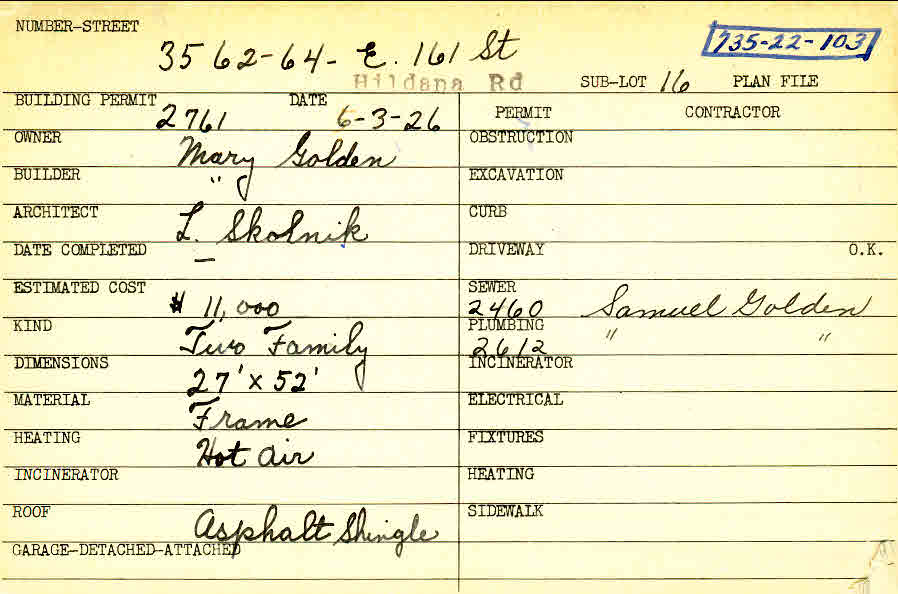 NUMBER-STREET
3562-64- E. 161 St
735-22-103
Hildana Rd
SUB-LOT 16 PLAN FILE
BUILDING PERMIT 2761 DATE 6-3-26
PERMIT CONTRACTOR
OWNER Mary Golden
OBSTRUCTION
BUILDER "
EXCAVATION
ARCHITECT L. Skolnik
CURB
DATE COMPLETED —
DRIVEWAY O.K.
ESTIMATED COST $ 11,000
SEWER
2460 Samuel Golden
KIND Two Family
PLUMBING
2612 " "
DIMENSIONS 27' x 52'
INCINERATOR
MATERIAL Frame
ELECTRICAL
HEATING Hot Air
FIXTURES
INCINERATOR
HEATING
ROOF Asphalt Shingle
SIDEWALK
GARAGE-DETACHED-ATTACHED